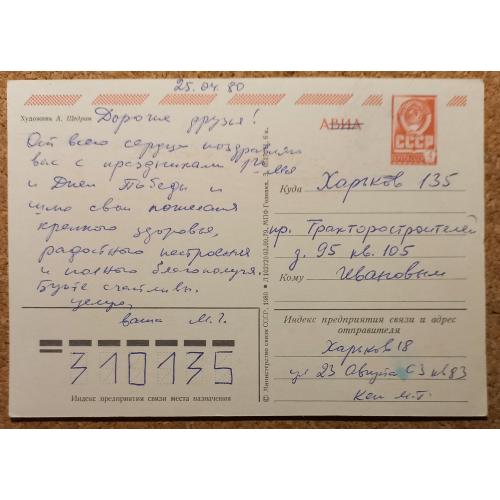 25.04.80
Художник А. Щедрин
Дорогие друзья!
От всего сердца поздравляю
вас с праздниками 1го мая
и Днем Победы и
шлю свои пожелания
крепкого здоровья,
радостного настроения
и полного благополучия.
Будьте счастливы.
Целую,
ваша М. Г.
АВИА
СССР
4
Куда Харьков 135
пр. Тракторостроителей
д. 95 кв. 105
Кому Ивановым
Индекс предприятия связи и адрес
отправителя
Харьков 18
ул 23 Августа 63 кв 83
М.Г.
310135
Индекс предприятия связи места назначения
© Министерство связи СССР, 1980